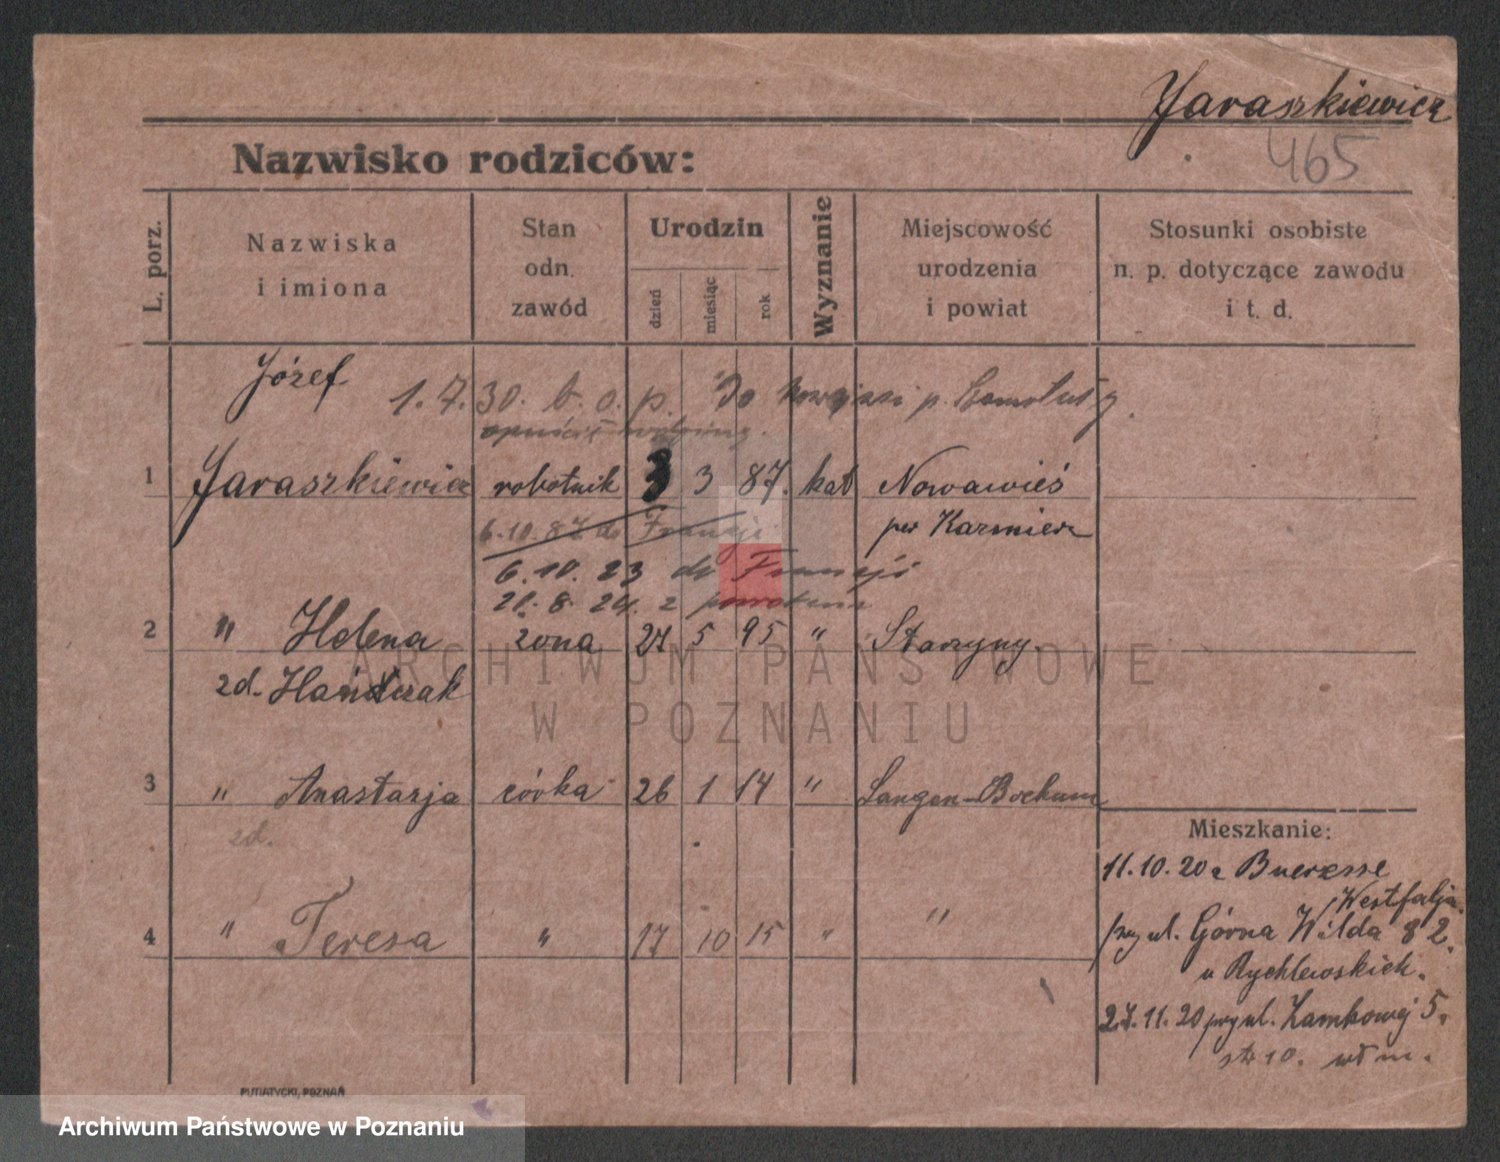 Jaraszkiewicz
465
Nazwisko rodziców:
L. porz.
Nazwiska
i imiona
Stan
odn.
zawód
Urodzin
dzień
miesiąc
rok
Wyznanie
Miejscowość
urodzenia
i powiat
Stosunki osobiste
n. p. dotyczące zawodu
i t. d.
Józef
1.7.30. b. o. p. Do p. Szamotuły
1 Jaraszkiewicz robotnik 3 3 87. kat Nowawieś
6.10. do Francji
per Kazmierz
6.10.23 do Francji
21.8.24. z powrotem
2 " Helena żona 27 5 95 " Starzyny.
zd. Hańczak
ARCHIWUM PAŃSTWOWE
W POZNANIU
3 " Anastazja córka 26 1 14 " Langen-Bochum
zd.
4 " Teresa " 17 10 15 " "
Mieszkanie:
11.10.20 z Bueresse
Westfalja.
przy ul. Górna Wilda 82.
u Rychlewskich.
27.11.20 przy ul. Zamkowej 5.
str 10. wł m.
PUTIATYCKI, POZNAŃ
Archiwum Państwowe w Poznaniu